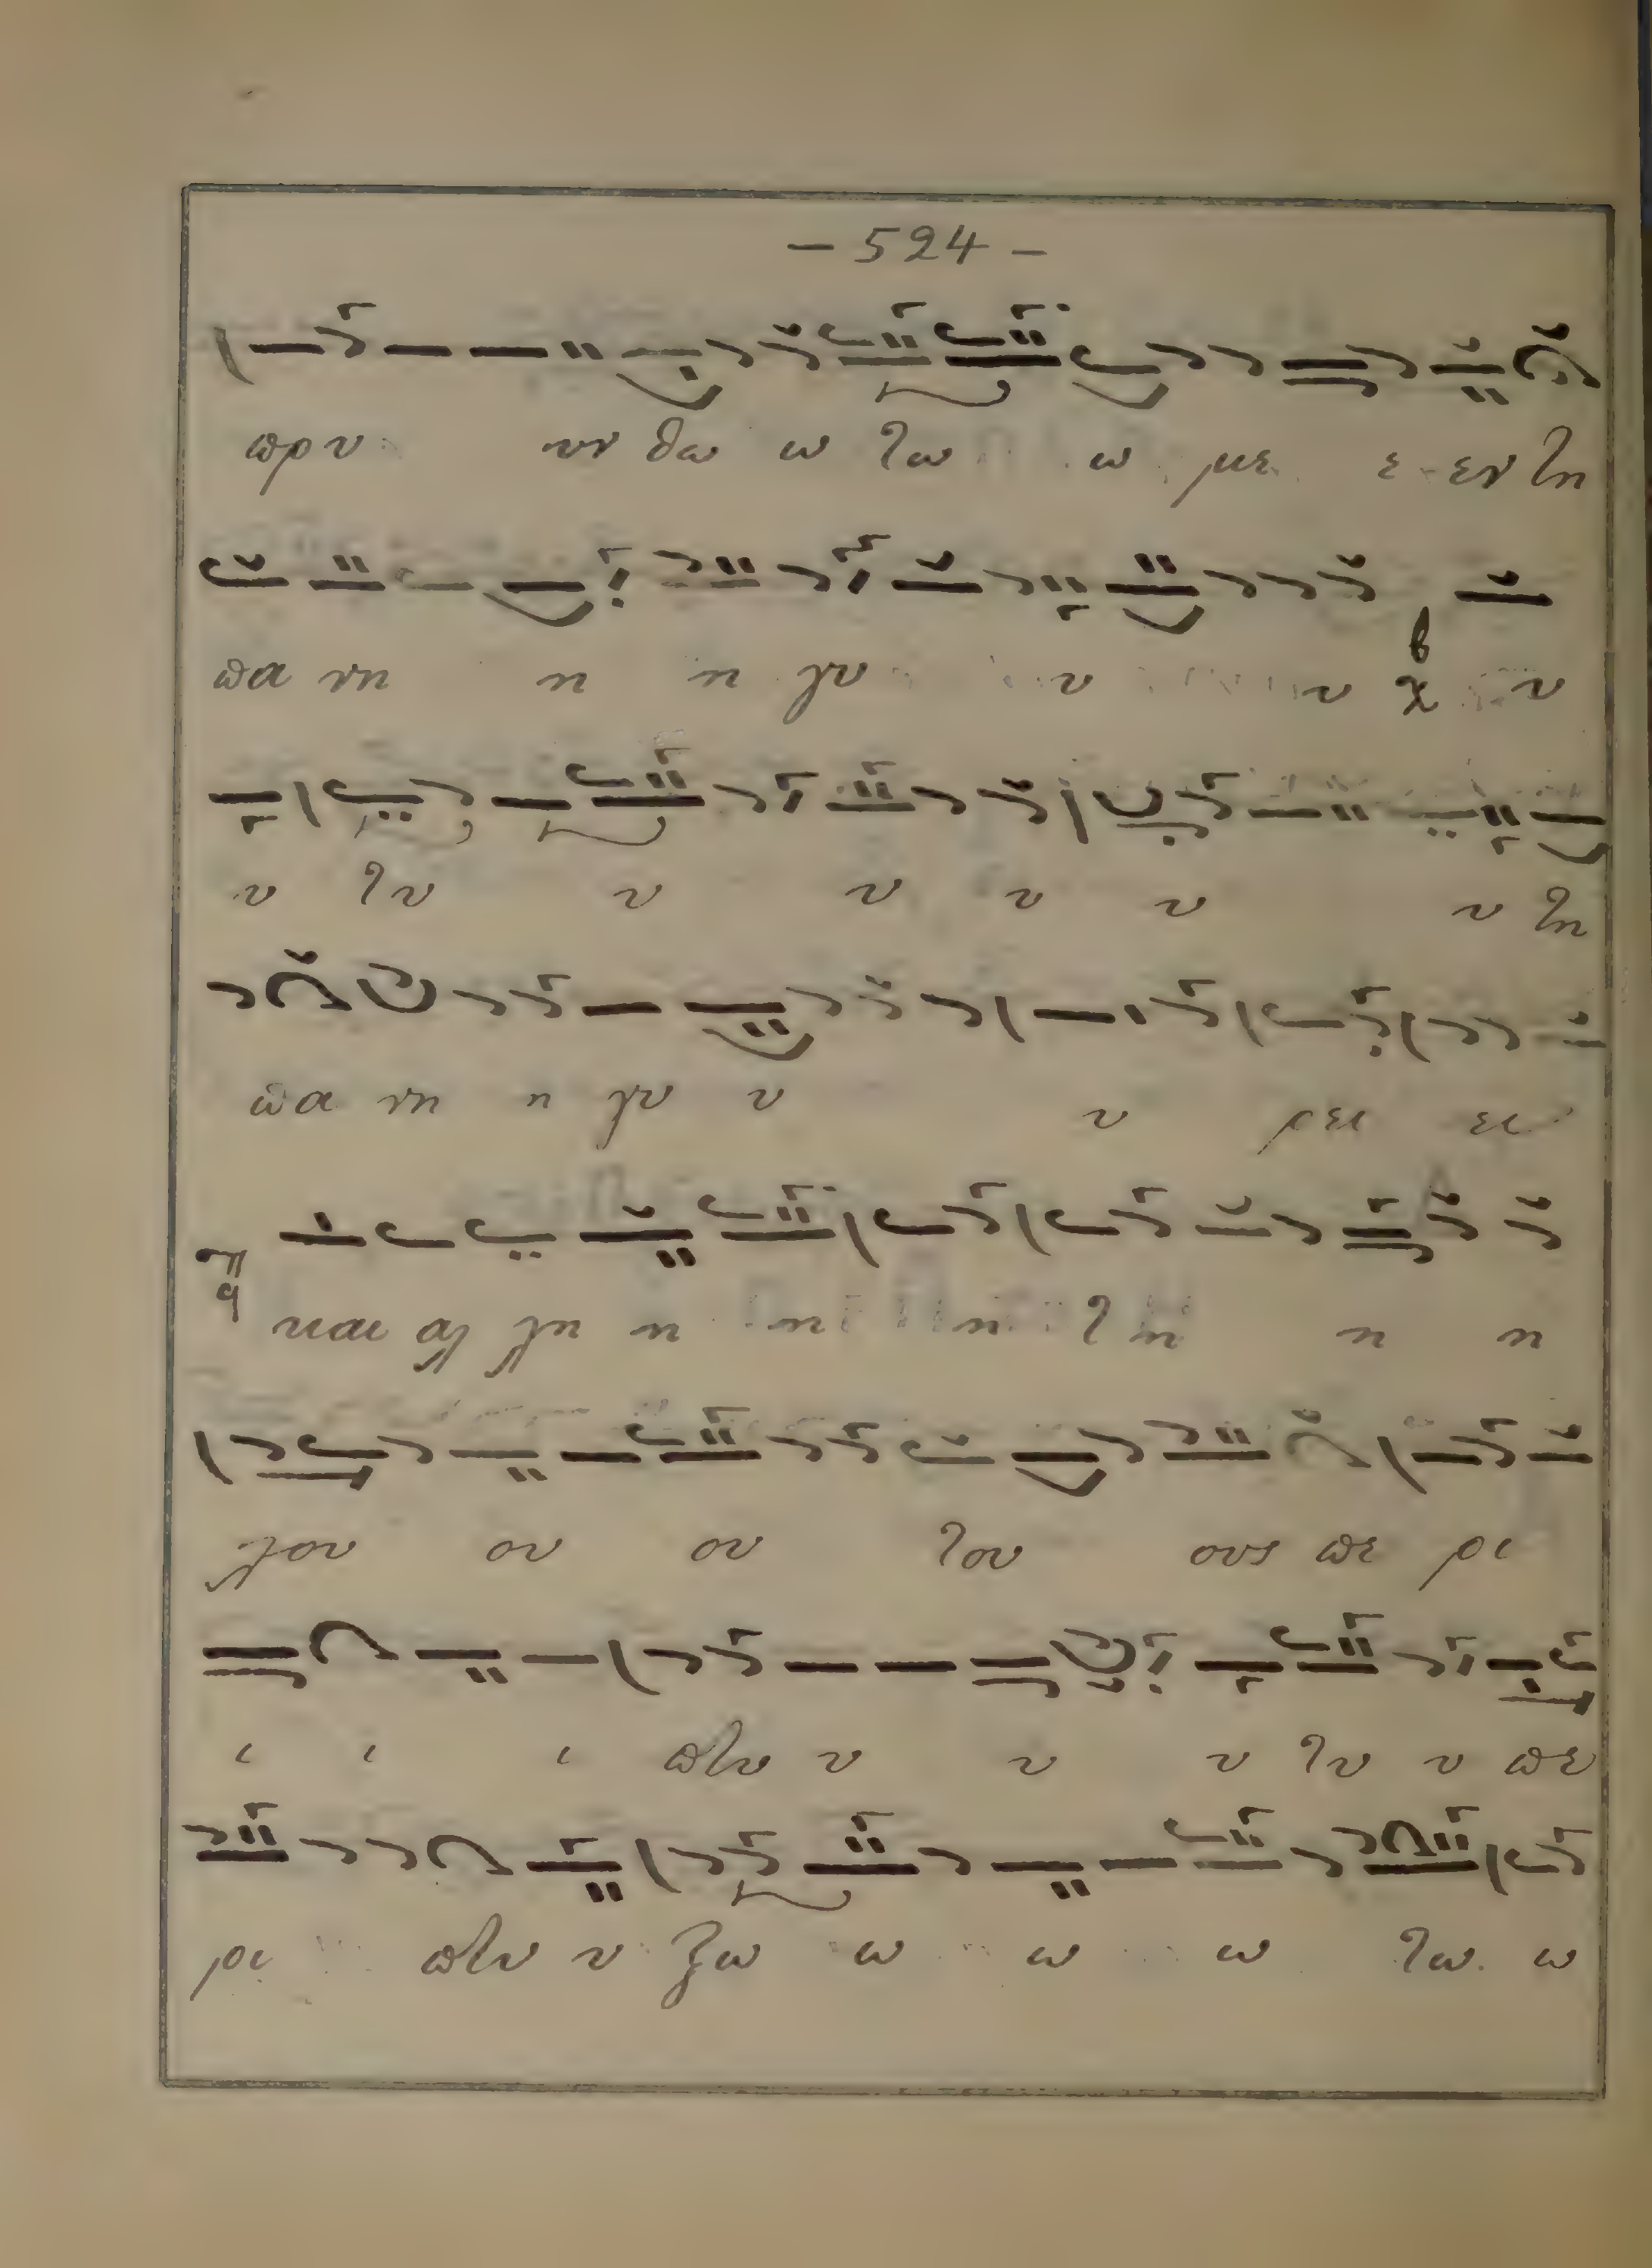 - 524 -
πρυ υν θω ω τω ω με ε εν τη
πα νη η η γυ υ υ υ
υ τυ υ υ υ υ υ τη
πα νη η γυ υ υ ρει ει
και αλ λη η η η τη η η
λου ου ου του ους πε ρι
ι ι ι πτυ υ υ υ τυ υ πε
ρι πτυ υ ξω ω ω ω τω ω